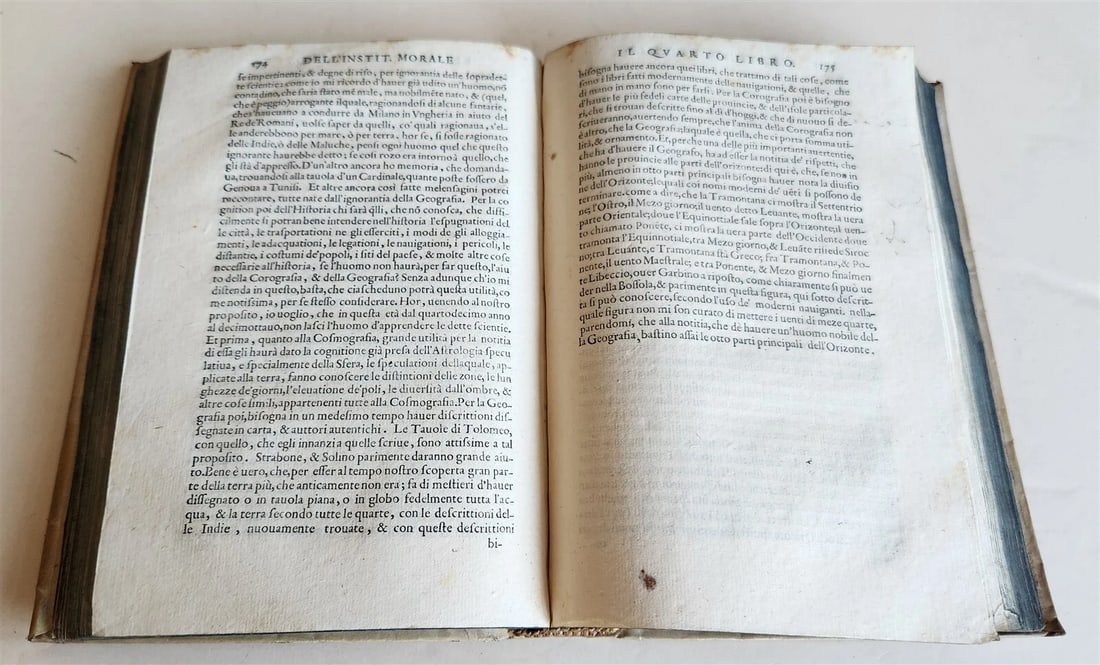 174 DELL'INSTIT. MORALE
se impertinenti, & degne di riso, per ignorantia delle sopradet-
te scientie: come io mi ricordo d'hauer già udito un'huomo, nō
contadino, che saria stato mē male, ma nobilmēte nato, & (quel,
che è peggio) arrogante ilquale, ragionandosi di alcune fantarie,
che s'haueuano a condurre da Milano in Vngheria in aiuto del
Re de Romani, uolse saper da quelli, co' quali ragionaua, s'el-
le anderebbono per mare, ò per terra. hor se, si fosse ragionato
delle Indie, ò delle Maluche, pensi ogni huomo quel che questo
ignorante haurebbe detto; se così rozo era intorno à quello, che
gli stà d'appresso. D'un'altro ancora ho memoria, che domanda-
ua, trouandosi alla tauola d'un Cardinale, quante poste fossero da
Genoua a Tunisi. Et altre ancora così fatte melensagini potrei
raccontare, tutte nate dall'ignorantia della Geografia. Per la co
gnition poi dell'Historia chi sarà q̄lli, che nō conosca, che diffi-
cilmente si potran bene intendere nell'historia l'espugnationi del
le città, le trasportationi ne gli esserciti, i modi de gli alloggia-
menti, le adacquationi, le legationi, le nauigationi, i pericoli, le
distantie, i costumi de' popoli, i siti del paese, & molte altre cose
necessarie all'historia, se l'huomo non haurà, per far questo, l'aiu
to della Corografia, & della Geografia? Senza adunque ch'io mi
distenda in questo, basta, che ciascheduno potrà questa utilità, co
me notissima, per se stesso considerare. Hor, uenendo al nostro
proposito, io uoglio, che in questa età dal quartodecimo anno
al decimottauo, non lasci l'huomo d'apprendere le dette scientie.
Et prima, quanto alla Cosmografia, grande utilità per la notitia
di essa gli haurà dato la cognitione già presa dell'Astrologia specu
latiua, e specialmente della Sfera, le speculationi dellaquale, ap-
plicate alla terra, fanno conoscere la distintioni delle zone, le lun
ghezze de' giorni, l'eleuatione de' poli, le diuersità dall'ombre, &
altre cose simili, appartenenti tutte alla Cosmografia. Per la Geo-
grafia poi, bisogna in un medesimo tempo hauer discrittioni dis-
segnate in carta, & auttori autentichi. Le Tauole di Tolomeo,
con quello, che egli innanzi a quelle scriue, sono attissime a tal
proposito. Strabone, & Solino parimente daranno grande aiu-
to. Bene è uero, che, per esser al tempo nostro scoperta gran par-
te della terra più, che anticamente non era; fa di mestieri d'hauer
dissegnato o in tauola piana, o in globo fedelmente tutta l'ac-
qua, & la terra secondo tutte le quarte, con le descrittioni del-
le Indie, nuouamente trouate, & con queste descrittioni
bi-
IL QVARTO LIBRO. 175
bisogna hauere ancora quei libri, che trattano di tali cose, come
sono i libri fatti modernamente delle nauigationi, & quelle, che
di mano in mano sono per farsi. Per la Corografia poi è bisogno
d'hauer le più fedeli carte delle prouincie, & dell'isole particola-
ri, che si trouan descritte sino al dì d'hoggi, & che di nuouo si de-
scriueranno, auertendo sempre, che l'anima della Corografia non
è altro, che la Geografia; laquale è quella, che ci porta somma uti-
lità, & ornamento. Er, perche una delle più importanti auertentie,
che ha d'hauere il Geografo, ha ad esser la notitia de' rispetti, che
hanno le prouincie alle parti dell'orizonte: di qui è, che, se non in
più, almeno in otto parti principali bisogna hauer nota la diuisio
ne dell'Orizonte, lequali coi nomi moderni de' uēti si possono de
terminare. come a dire, che la Tramontana ci mostra il Settentrio
ne; l'Ostro, il Mezo giorno; il uento detto Leuante, mostra la uera
parte Orientale; doue l'Equinottiale sale sopra l'Orizonte; il uen-
to chiamato Ponēte, ci mostra la uera parte dell'Occidente doue
tramonta l'Equinottiale, tra Mezo giorno, & Leuāte risiede Siroc
no; tra Leuante, e Tramontana stà Greco; fra Tramontana, & Po-
nente, il uento Maestrale; e tra Ponente, & Mezo giorno finalmen
te Libeccio, ouer Garbino a riposto, come chiaramente si può ue
der nella Bossola, & parimente in questa figura, qui sotto descrit-
ta si può conoscere, secondo l'uso de' moderni nauiganti. nella-
quale figura non mi son curato di mettere i uenti di meze quarte,
parendomi, che alla notitia, che de hauere un'huomo nobile del-
la Geografia, bastino assai le otto parti principali dell'Orizonte.